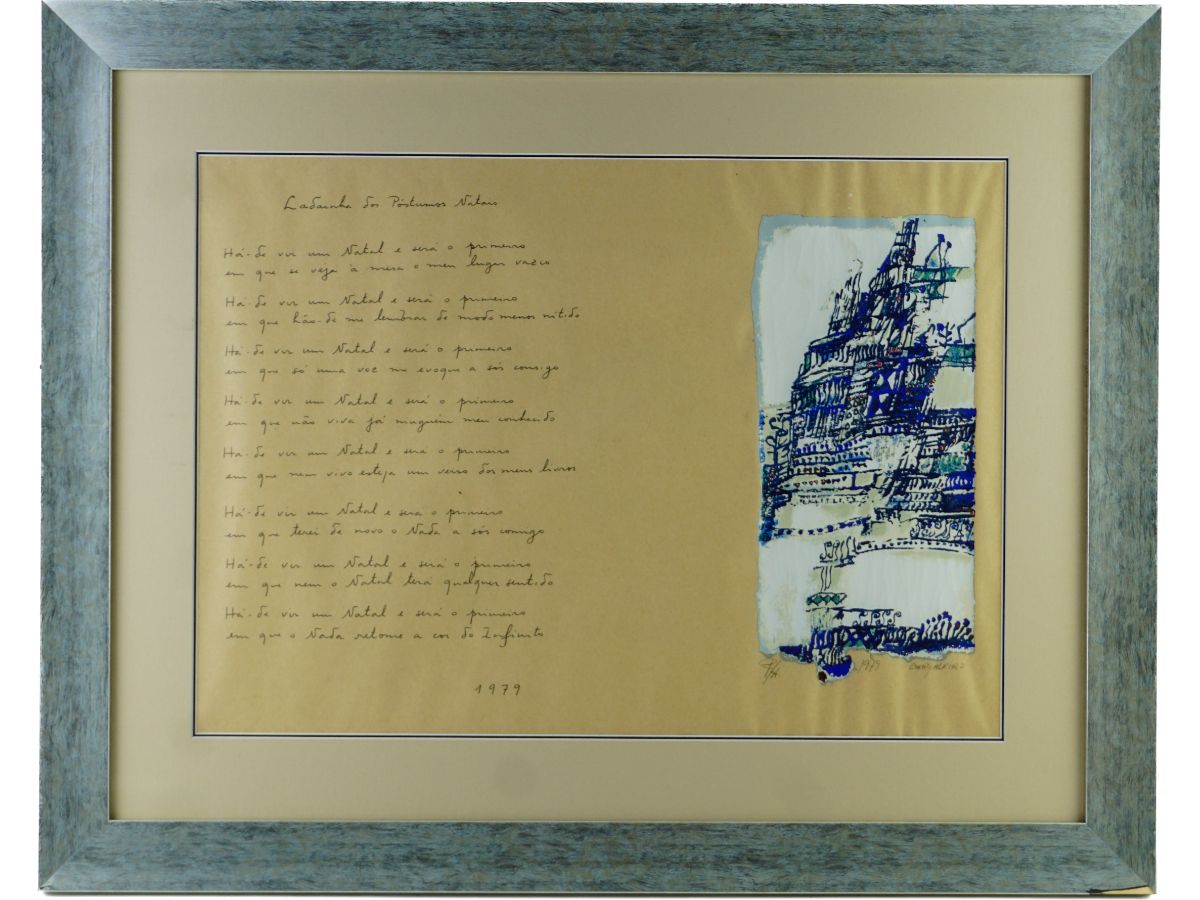 Ladainha dos Póstumos Natais
Há-de vir um Natal e será o primeiro
em que se veja à mesa o meu lugar vazio
Há-de vir um Natal e será o primeiro
em que hão-de me lembrar de modo menos nítido
Há-de vir um Natal e será o primeiro
em que só uma voz me evoque a sós consigo
Há-de vir um Natal e será o primeiro
em que não viva já ninguém meu conhecido
Há-de vir um Natal e será o primeiro
em que nem vivo esteja um verso dos meus livros
Há-de vir um Natal e será o primeiro
em que terei de novo o Nada a sós comigo
Há-de vir um Natal e será o primeiro
em que nem o Natal terá qualquer sentido
Há-de vir um Natal e será o primeiro
em que o Nada retome a cor do Infinito
1979
1979